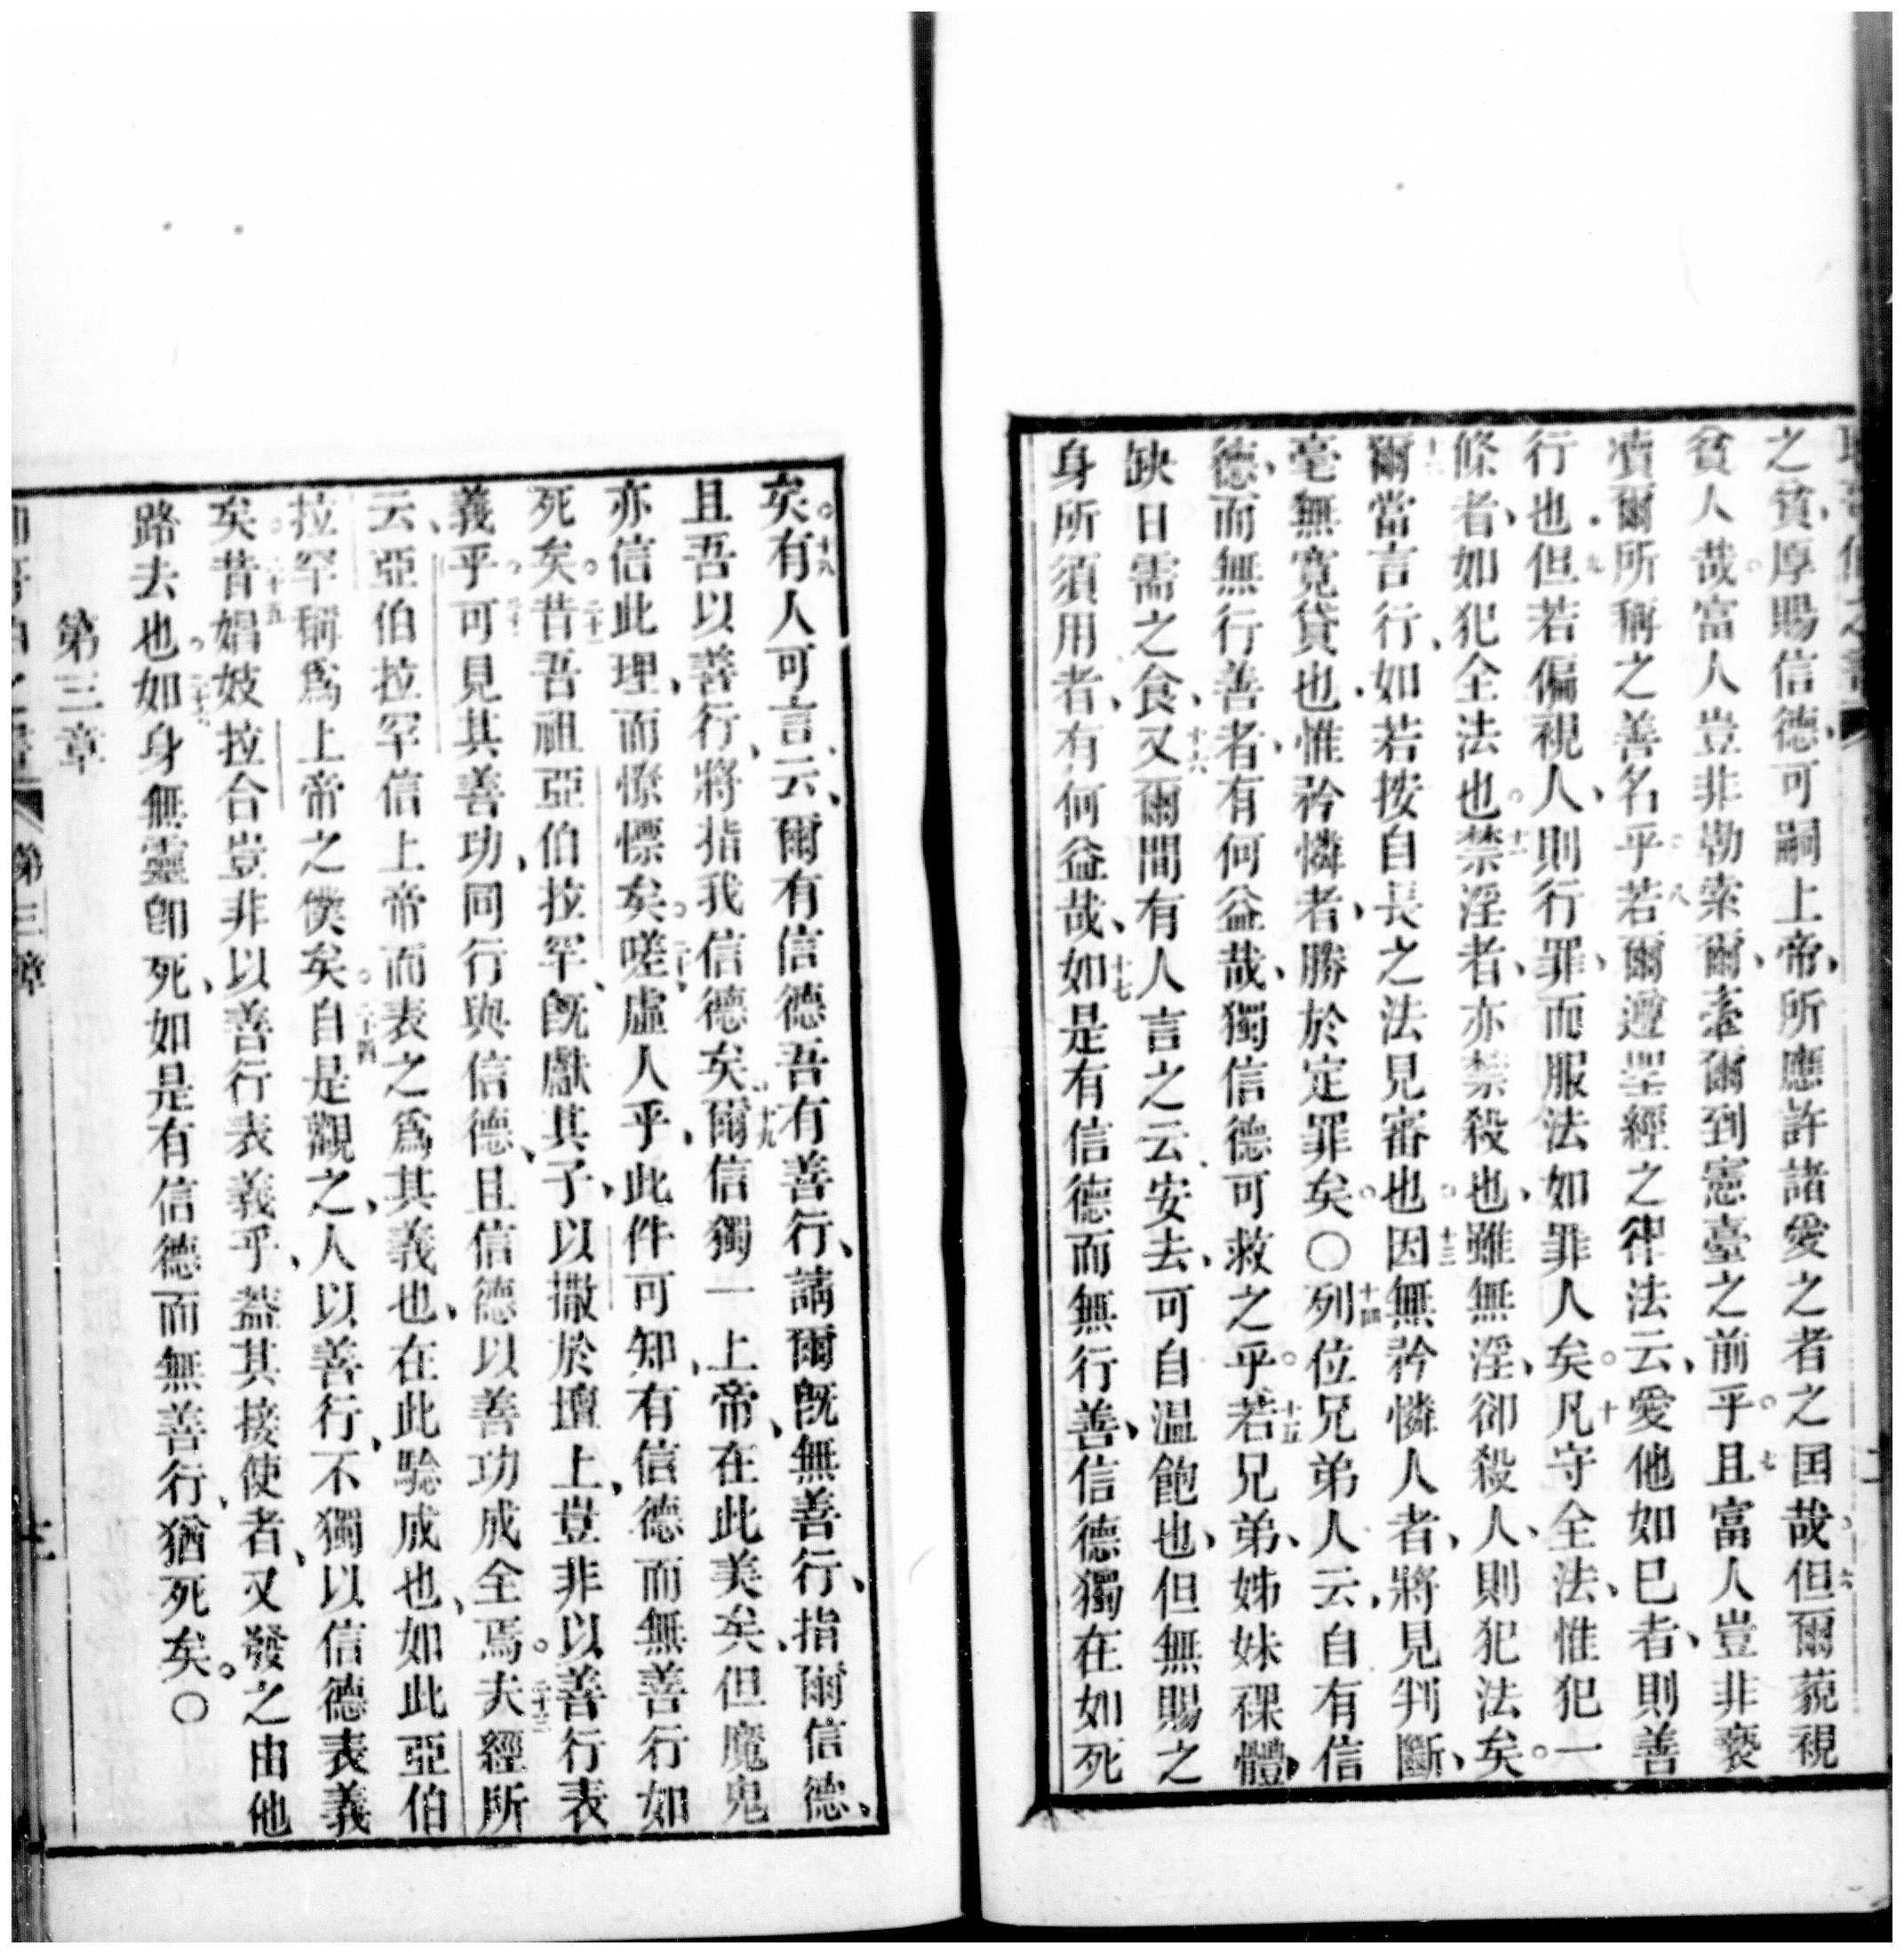 之貧、厚賜信德、可嗣上帝、所應許諸愛之者之国哉、六但爾藐視
貧人哉。富人豈非勒索爾、牽爾到憲臺之前乎。七且富人豈非褻
凟爾所稱之善名乎。八若爾遵聖經之律法云、愛他如已者、則善
行也。九但若偏視人、則行罪、而服法如罪人矣。十凡守全法、惟犯一
條者、如犯全法也。十一禁淫者、亦禁殺也、雖無淫、卻殺人、則犯法矣。
十二爾當言行、如若按自長之法見審也。十三因無矜憐人者、將見判斷、
毫無寬貸也、惟矜憐者、勝於定罪矣。〇十四列位兄弟、人云、自有信
德、而無行善者、有何益哉、獨信德可救之乎。十五若兄弟、姊妹祼體、
缺日需之食、十六又爾間有人言之云、安去、可自溫飽也、但無賜之
身所須用者、有何益哉、十七如是有信德而無行善、信德獨在如死
矣。十八有人可言云、爾有信德、吾有善行、請爾旣無善行、指爾信德、
且吾以善行、將指我信德矣。十九爾信獨一上帝、在此美矣、但魔鬼
亦信此理、而憭慓矣。二十嗟、虛人乎、此件可知、有信德而無善行如
死矣。二十一昔吾祖亞伯拉罕、旣獻其子、以撒於壇上、豈非以善行表
義乎。二十二可見其善功、同行與信德、且信德以善功成全焉。二十三夫經所
云、亞伯拉罕信上帝、而表之爲其義也、在此騐成也、如此亞伯
拉罕稱爲上帝之僕矣。二十四自是觀之、人以善行、不獨以信德表義
矣。二十五昔娼妓拉合、豈非以善行表義乎、蓋其接使者、又發之由他
路去也。二十六如身無靈卽死、如是有信德而無善行、猶死矣。〇
第三章
第三章